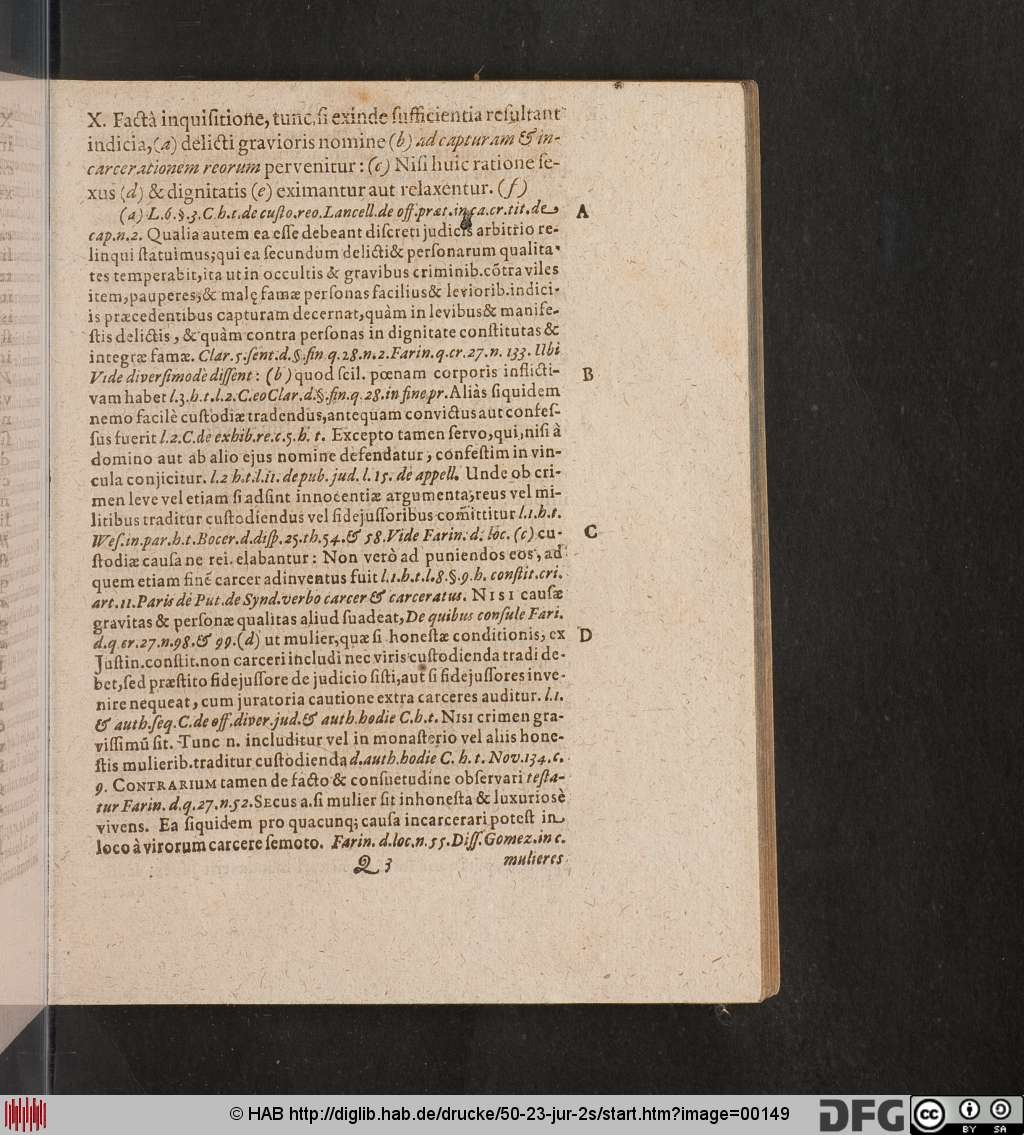 X. Factâ inquisitione, tunc, si exinde sufficientia resultant
indicia, (a) delicti gravioris nomine (b) ad capturam & in-
carcerationem reorum pervenitur: (c) Nisi huic ratione se-
xus (d) & dignitatis (e) eximantur aut relaxentur. (f)
(a) L.6.§.3.C.h.t.de custo.reo.Lancell.de off.præt.in ca.cr.tit.de A
cap.n.2. Qualia autem ea esse debeant discreti judicis arbitrio re-
linqui statuimus; qui ea secundum delicti & personarum qualita-
tes temperabit, ita ut in occultis & gravibus criminib. cõtra viles
item, pauperes, & malę famæ personas facilius & leviorib. indici-
is præcedentibus capturam decernat, quàm in levibus & manife-
stis delictis, & quàm contra personas in dignitate constitutas &
integræ famæ. Clar.5.sent.d.§.fin q.28.n.2.Farin.q.cr.27.n.133. Ubi
Vide diversimodè dissent: (b) quod scil. pœnam corporis inflicti- B
vam habet l.3.h.t.l.2.C.eo Clar.d.§.fin.q.28.in fine pr. Aliàs siquidem
nemo facilè custodiæ tradendus, antequam convictus aut confes-
sus fuerit l.2.C.de exhib.re.c.5.h. t. Excepto tamen servo, qui, nisi à
domino aut ab alio ejus nomine defendatur, confestim in vin-
cula conjicitur. l.2 h.t.l.11. de pub. jud. l. 15. de appell. Unde ob cri-
men leve vel etiam si adsint innocentiæ argumenta, reus vel mi-
litibus traditur custodiendus vel fidejussoribus com̃ittitur l.1.h.t.
Wes.in par.h.t.Bocer.d.disp.25.th.54.& 58.Vide Farin. d. loc. (c) cu- C
stodiæ causa ne rei elabantur: Non verò ad puniendos eos, ad
quem etiam finẽ carcer adinventus fuit l.1.h.t.l.8.§.9.h. constit.cri.
art.11.Paris de Put.de Synd.verbo carcer & carceratus. NISI causæ
gravitas & personæ qualitas aliud suadeat, De quibus consule Fari.
d.q cr.27.n.98.& 99.(d) ut mulier, quæ si honestæ conditionis, ex D
Justin. constit. non carceri includi nec viris custodienda tradi de-
bet, sed præstito fidejussore de judicio sisti, aut si fidejussores inve-
nire nequeat, cum juratoria cautione extra carceres auditur. l.1.
& auth.seq.C.de off.diver.jud.& auth.hodie C.h.t. NISI crimen gra-
vissimũ sit. Tunc n. includitur vel in monasterio vel aliis hone-
stis mulierib. traditur custodienda d.auth.hodie C. h. t. Nov.134.c.
9. CONTRARIUM tamen de facto & consuetudine observari testa-
tur Farin. d.q.27.n.52. SECUS a. si mulier sit inhonesta & luxuriosè
vivens. Ea siquidem pro quacunq; causa incarcerari potest in
loco à virorum carcere semoto. Farin. d.loc.n.55.Diss.Gomez.in c.
Q 3 mulieres
© HAB http://diglib.hab.de/drucke/50-23-jur-2s/start.htm?image=00149
DFG
cc BY SA